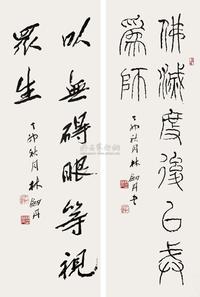 佛滅度後以戒
爲師
丁卯秋月林劍丹書
以無碍眼等視
眾生
丁卯秋月林劍丹